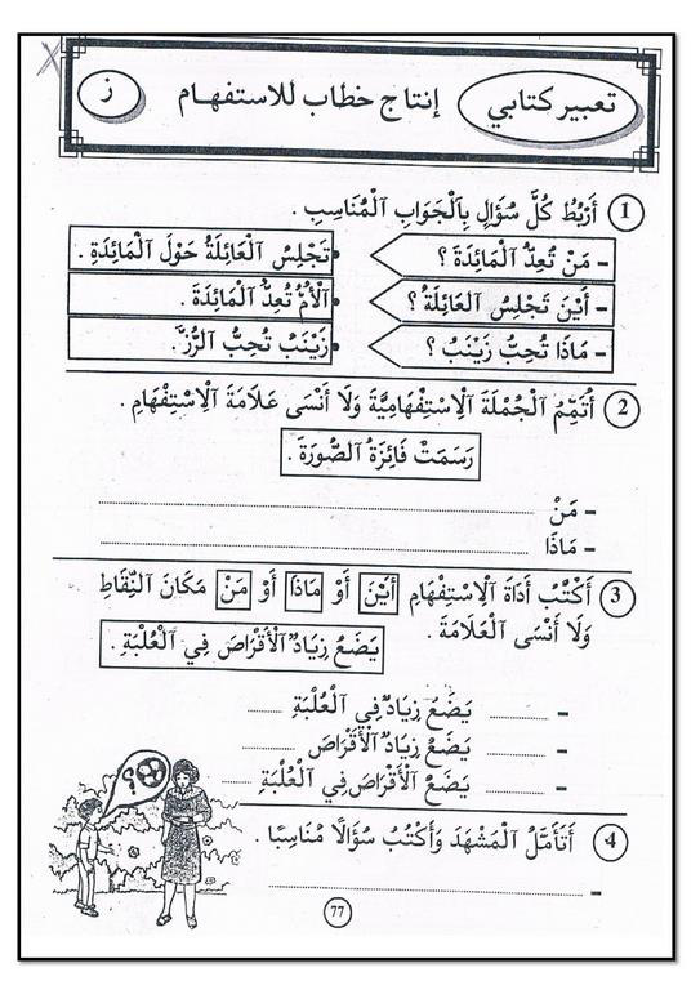 تعبير كتابي إنتاج خطاب للاستفهام ز
1 أَرْبُطُ كُلَّ سُؤَالٍ بِالْجَوَابِ الْمُنَاسِبِ .
- مَنْ تُعِدُّ الْمَائِدَةَ ؟ تَجْلِسُ الْعَائِلَةُ حَوْلَ الْمَائِدَةِ .
- أَيْنَ تَجْلِسُ الْعَائِلَةُ ؟ الْأُمُّ تُعِدُّ الْمَائِدَةَ .
- مَاذَا تُحِبُّ زَيْنَبُ ؟ زَيْنَبُ تُحِبُّ الرُّزَّ .
2 أُتَمِّمُ الْجُمْلَةَ الْاِسْتِفْهَامِيَّةَ وَلَا أَنْسَى عَلَامَةَ الْاِسْتِفْهَامِ .
رَسَمَتْ فَائِزَةُ الصُّورَةَ .
- مَنْ ........................
- مَاذَا ........................
3 أَكْتُبُ أَدَاةَ الْاِسْتِفْهَامِ أَيْنَ أَوْ مَاذَا أَوْ مَنْ مَكَانَ النِّقَاطِ
وَلَا أَنْسَى الْعَلَامَةَ .
يَضَعُ زِيَادٌ الْأَقْرَاصَ فِي الْعُلْبَةِ .
- ........ يَضَعُ زِيَادٌ فِي الْعُلْبَةِ ........
- ........ يَضَعُ زِيَادٌ الْأَقْرَاصَ ........
- ........ يَضَعُ الْأَقْرَاصَ فِي الْعُلْبَةِ ........
؟
4 أَتَأَمَّلُ الْمَشْهَدَ وَأَكْتُبُ سُؤَالًا مُنَاسِبًا .
- ........................
77